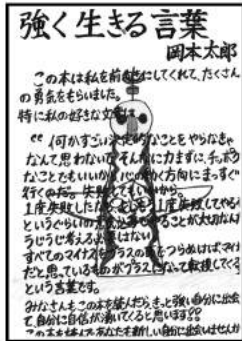 強く生きる言葉
岡本太郎
この本は私を前向きにしてくれて、たくさん
の勇気をもらいました。
特に私の好きな文章は
“何かすごい決定的なことをやらなきゃ
なんて思わないで、そんなに力まずに、チッポケ
なことでもいいから、心の動く方向にまっすぐ
行くのだ。失敗してもいいから。
1度失敗したなら、よしもう1度失敗してやるぞ
というぐらいの
ことが大切なんだ
うじうじ考える必要はない
すべてのマイナスを
プラスの面をつらぬけば、マイナス
だと思っているものがプラスになって転換してくる
という言葉です。
みなさんもこの本を読んだらきっと強い自分に出会え
て自分に自信が湧いてくると思います??
この本を読んで、あなたも新しい自分に出会いませんか